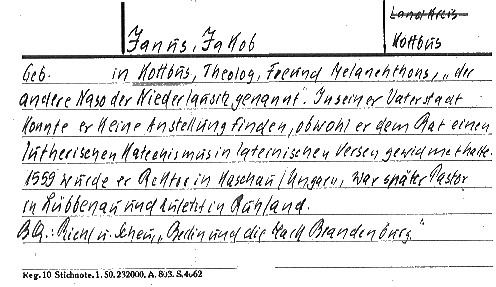 Landkreis
Janus, Jakob
Kottbus
Geb. in Kottbus, Theolog, Freund Melanchthons, „der
andere Naso der Niederlausitz genannt". In seiner Vaterstadt
konnte er keine Anstellung finden, obwohl er dem Rat einen
lutherischen Katechismus in lateinischen Versen gewidmet hatte.
1559 wurde er Rektor in Kaschau/Ungarn, war später Pastor
in Lübbenau und zuletzt in Ruhland.
BQ.: Riehl u. Scheu, „Berlin und die Mark Brandenburg"
Reg. 10 Stichnote. 1. 50. 232000. A. 803. S. 4662